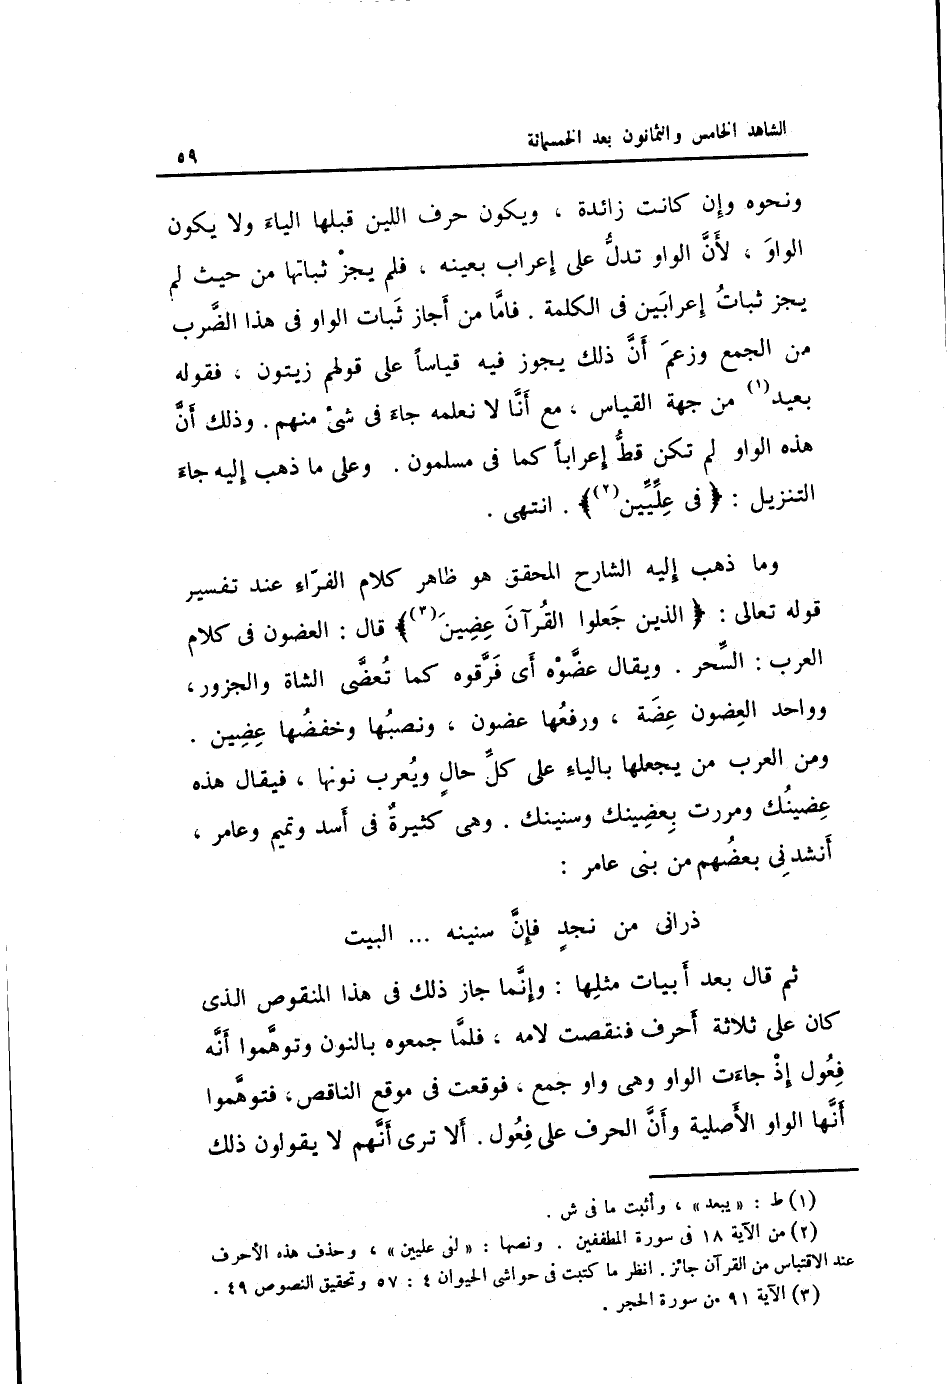 الشاهد الخامس والثمانون بعد الخمسمائة
٥٩
ونحوه وإن كانت زائدة ، ويكون حرف اللين قبلها الياءَ ولا يكون
الواوَ ، لأَنَّ الواو تدلُّ على إعراب بعينه ، فلم يجزْ ثباتها من حيث لم
يجز ثباتُ إعرابَين فى الكلمة . فامَّا من أَجاز ثَبات الواو فى هذا الضَّرب
من الجمع وزعمَ أَنَّ ذلك يجوز فيه قياساً على قولهم زيتون ، فقوله
بعيد(١) من جهة القياس ، مع أَنَّا لا نعلمه جاءَ فى شىْ منهم . وذلك أَنَّ
هذه الواو لم تكن قطُّ إعراباً كما فى مسلمون . وعلى ما ذهب إليه جاءَ
التنزيل : ﴿ فى عِلِّيِّين(٢)﴾ . انتهى .
وما ذهب إليه الشارح المحقق هو ظاهر كلام الفرّاءِ عند تفسير
قوله تعالى : ﴿ الذين جَعلوا القُرآنَ عِضِينَ(٣)﴾ قال : العضون فى كلام
العرب : السِّحر . ويقال عضَّوْه أى فَرَّقوه كما تُعضَّى الشاة والجزور ،
وواحد العِضون عِضَة ، ورفعُها عضون ، ونصبُها وخفضُها عِضِين .
ومن العرب من يجعلها بالياءِ على كلِّ حالٍ ويُعرب نونها ، فيقال هذه
عِضينُك ومررت بِعضِينك وسنينك . وهى كثيرةٌ فى أَسد وتميم وعامر ،
أَنشدنِى بعضُهم من بنى عامر :
ذرانى من نجدٍ فإِنَّ سنينه ... البيت
ثم قال بعد أَبيات مثلِها : وإِنَّما جاز ذلك فى هذا المنقوص الذى
كان على ثلاثة أَحرف فنقصت لامه ، فلمَّا جمعوه بالنون وتوهَّموا أَنَّه
فِعُول إذْ جاءَت الواو وهى واو جمع ، فوقعت فى موقع الناقص ، فتوهَّموا
أَنَّها الواو الأَصلية وأَنَّ الحرف على فِعُول . أَلا ترى أَنَّهم لا يقولون ذلك
(١) ط : « يبعد » ، وأثبت ما فى ش .
(٢) من الآية ١٨ فى سورة المطففين . ونصها : « لفى عليين » ، وحذف هذه الأحرف
عند الاقتباس من القرآن جائز . انظر ما كتبت فى حواشى الحيوان ٤ : ٥٧ وتحقيق النصوص ٤٩ .
(٣) الآية ٩١ من سورة الحجر .